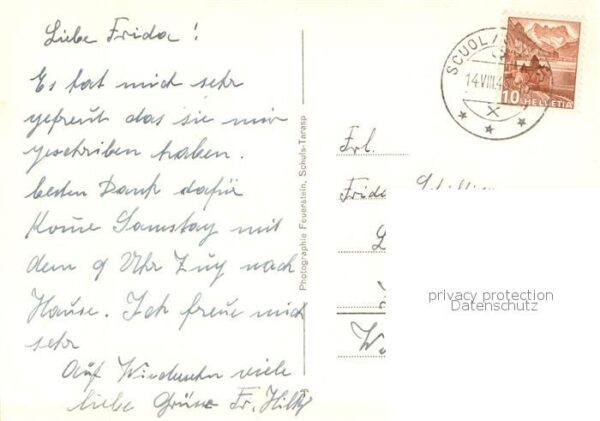 Liebe Frida!
Es hat mich sehr
gefreut das sie mir
geschriben haben.
besten Dank dafür
Kome Samstag mit
dem 9 Uhr Zug nach
Hause. Ich freue mich
sehr
Auf Wiedersehn viele
liebe Grüsse Fr. Hilty
Photographie Feuerstein, Schuls-Tarasp
SCUOL/S
14.VIII.4
10 HELVETIA
Frl.
Frida
privacy protection
Datenschutz